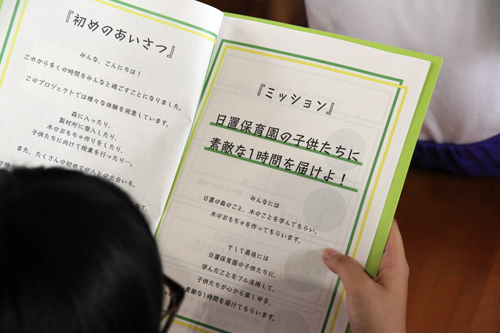 『初めのあいさつ』
みんな、こんにちは!
これから多くの時間をみんなと過ごすことになりました。
このプロジェクトでは様々な体験を用意しています。
森に入ったり、
製材所に潜入したり、
木のおもちゃ作りをしたり、
子供たちに向けて授業を行ったり…。
また、たくさんの初めての人との出会いも。
『ミッション』
日置保育園の子供たちに
素敵な1時間を届けよ!
みんなには
日置の森のこと、木のことを学んでもらい、
木のおもちゃを作ってもらいます。
そして最後には
日置保育園の子供たちに、
学んだことをフル活用して、
子供たちが心から楽しめる、
素敵な1時間を届けてもらいます。